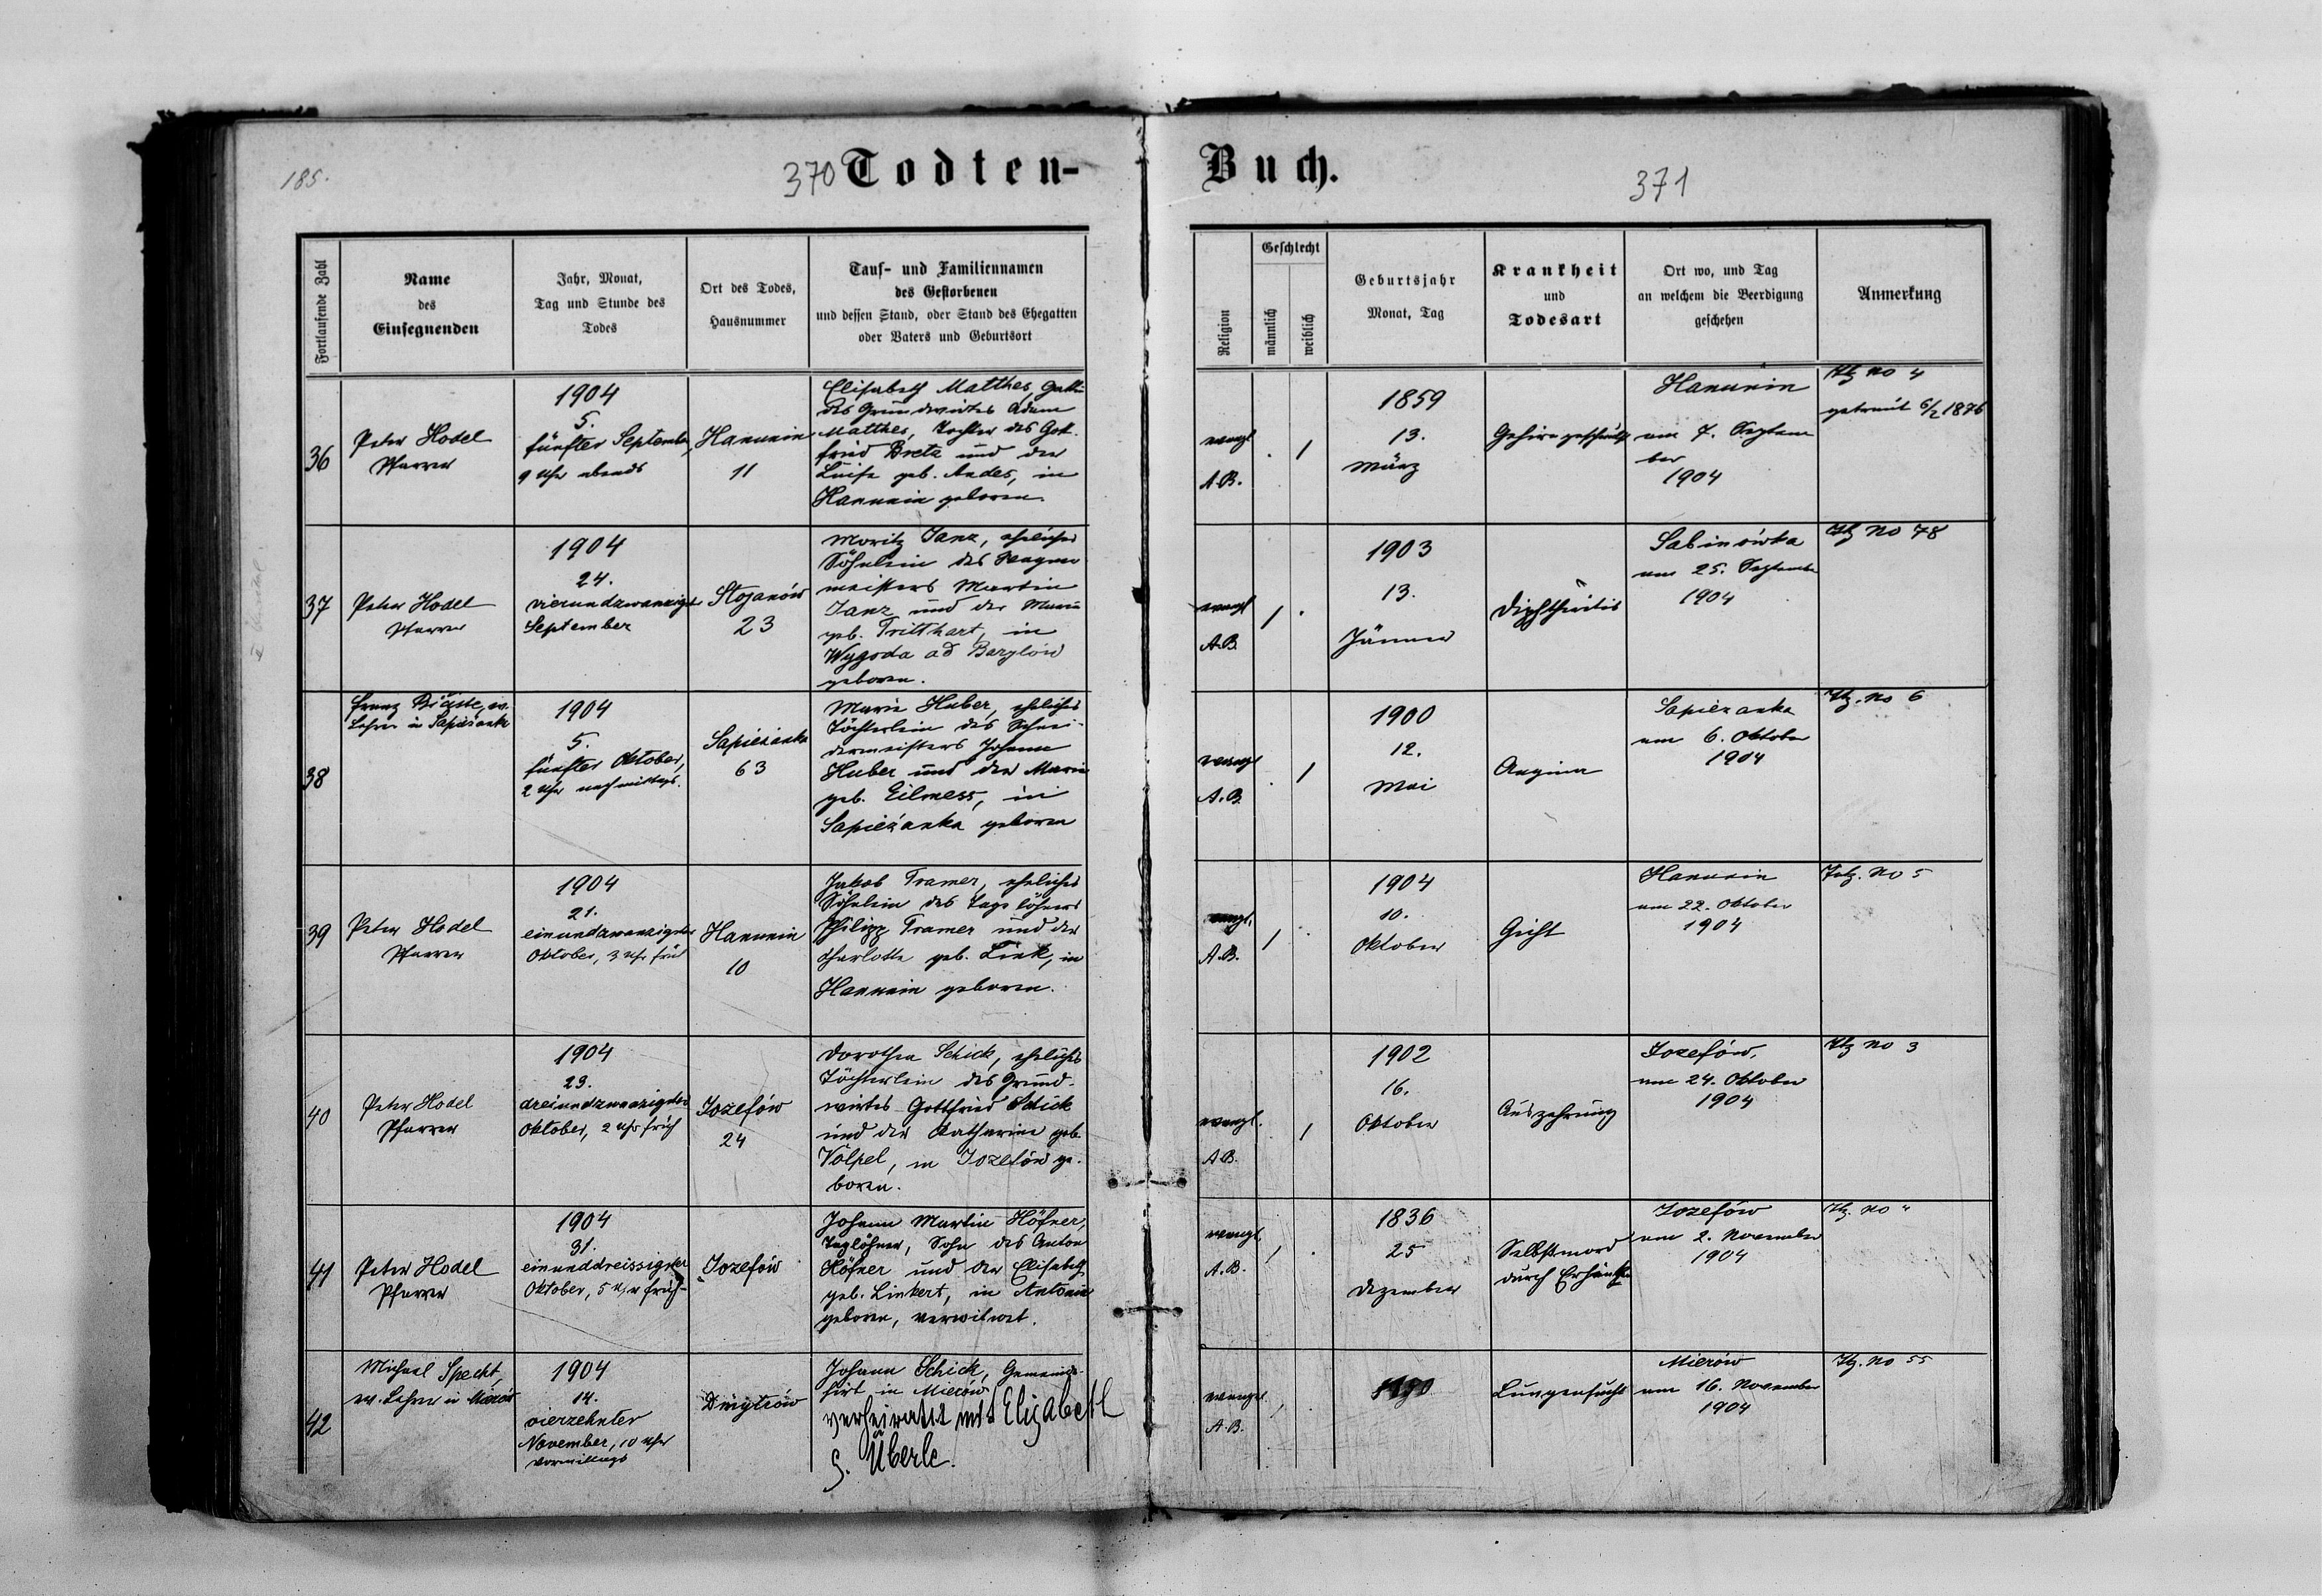 185.
370 Todten-
Buch.
371
Fortlaufende Zahl
Name
des
Einsegnenden
Jahr, Monat,
Tag und Stunde des
Todes
Ort des Todes,
Hausnummer
Tauf- und Familiennamen
des Gestorbenen
und dessen Stand, oder Stand des Ehegatten
oder Vaters und Geburtsort
Religion
Geschlecht
männlich
weiblich
Geburtsjahr
Monat, Tag
Krankheit
und
Todesart
Ort wo, und Tag
an welchem die Beerdigung
geschehen
Anmerkung
36
Peter Hodel
Pfarrer
1904
5.
fünfter September,
9 Uhr abends
Hanunin
11
Elisabeth Matthes, Gattin
des Grundwirtes Adam
Matthes, Tochter des Gott-
fried Bretz und der
Luise geb. Andes, in
Hanunin geboren.
evangl
A.B.
. /
1859
13.
März
Gehirngeschwulst
Hanunin
am 7. Septem
ber
1904
No 4
getraut 6/2 1876
37
Peter Hodel
Pfarrer
1904
24.
vierundzwanzigst
September
Stojanów
23
Moritz Janz, eheliches
Söhnlein des Wagner
meisters Martin
Janz und der Maria
geb. Tritthart, in
Wygoda ad Barylów
geboren.
evangl
A.B.
/ .
1903
13.
Jänner
Diphtheritis
Sabinówka
am 25. Septembe
1904
No 78
38
Franz ev.
Lehrer in Sapieżanka
1904
5.
fünfter Oktober,
2 Uhr nachmittags.
Sapieżanka
63
Marie Huber, eheliches
Töchterlein des Schnei-
dermeisters Johann
Huber und der Marie
geb. Eilmess, in
Sapieżanka geboren
evangl
A.B.
. /
1900
12.
Mai
Angina
Sapiezanka
am 6. Oktober
1904
No 6
39
Peter Hodel
Pfarrer
1904
21.
einundzwanzigster
Oktober, 3 Uhr früh
Hanunin
10
Jakob Tramer, eheliches
Söhnlein des Taglöhners
Philipp Tramer und der
Charlotte geb. Link, in
Hanunin geboren.
evangl.
A.B.
/ .
1904
10.
Oktober
Gicht
Hanunin
am 22. Oktober
1904
No 5
40
Peter Hodel
Pfarrer
1904
23.
dreiundzwanzigster
Oktober, 2 Uhr früh
Jozefów
24
Dorothea Schick, eheliches
Töchterlein des Grund-
wirtes Gottfried Schick
und der Katharine geb.
Völpel, in Jozefów ge-
boren.
evangl.
A.B.
. /
1902
16.
Oktober
Auszehrung
Jozefów,
am 24. Oktober
1904
No 3
41
Peter Hodel
Pfarrer
1904
31.
einunddreissigster
Oktober, 5 Uhr früh
Jozefów
Johann Martin Höfner,
Taglöhner, Sohn des Anton
Höfner und der Elisabeth
geb. Linkert, in Antonin
geboren, verwitwet.
evangl.
A.B.
/ .
1836
25
Dezember
Selbstmord
durch Erhänken
Jozefów
am 2. November
1904
No "
42
Michael Specht,
ev. Lehrer in Mierów
1904
14.
vierzehnter
November, 10 Uhr
vormittags
Dmytrów
Johann Schick, Gemeinde-
hirt in Mierów
verheiratet mit Elizabeth
g. Überle.
evangl.
A.B.
/ .
Lungensucht
Mierów
am 16. November
1904
No 55